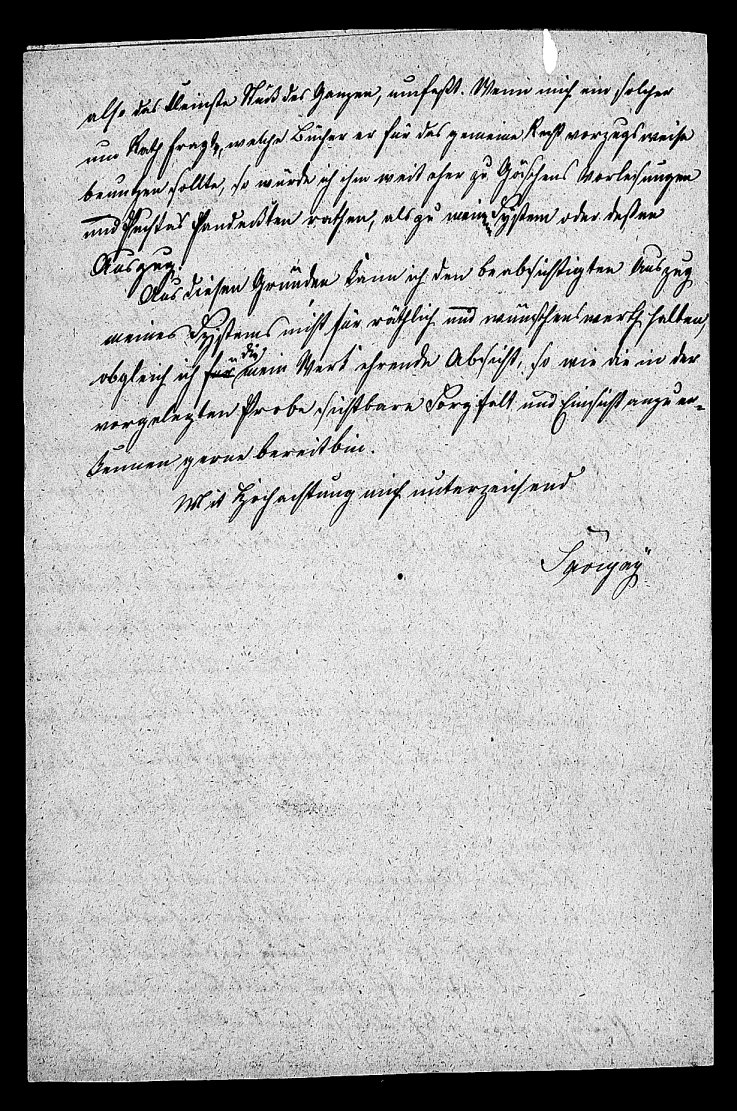 also das kleinste Stück des Ganzen, umfaßt. Wenn mich ein solcher
um Rath fragte, welche Bücher er für das gemeine Recht vorzugsweise
benutzen sollte, so würde ich ihm weit eher zu Göschens Vorlesungen
und Puchtas Pandekten rathen, als zu meinem System oder dessen
Auszug.
Aus diesen Gründen kann ich den beabsichtigten Auszug
meines Systems nicht für räthlich und wünschenswerth halten,
obgleich ich die mein Werk ehrende Absicht, so wie die in der
vorgelegten Probe sichtbare Sorgfalt und Einsicht anzuer-
kennen gerne bereit bin.
Mit Hochachtung mich unterzeichnend
Savigny